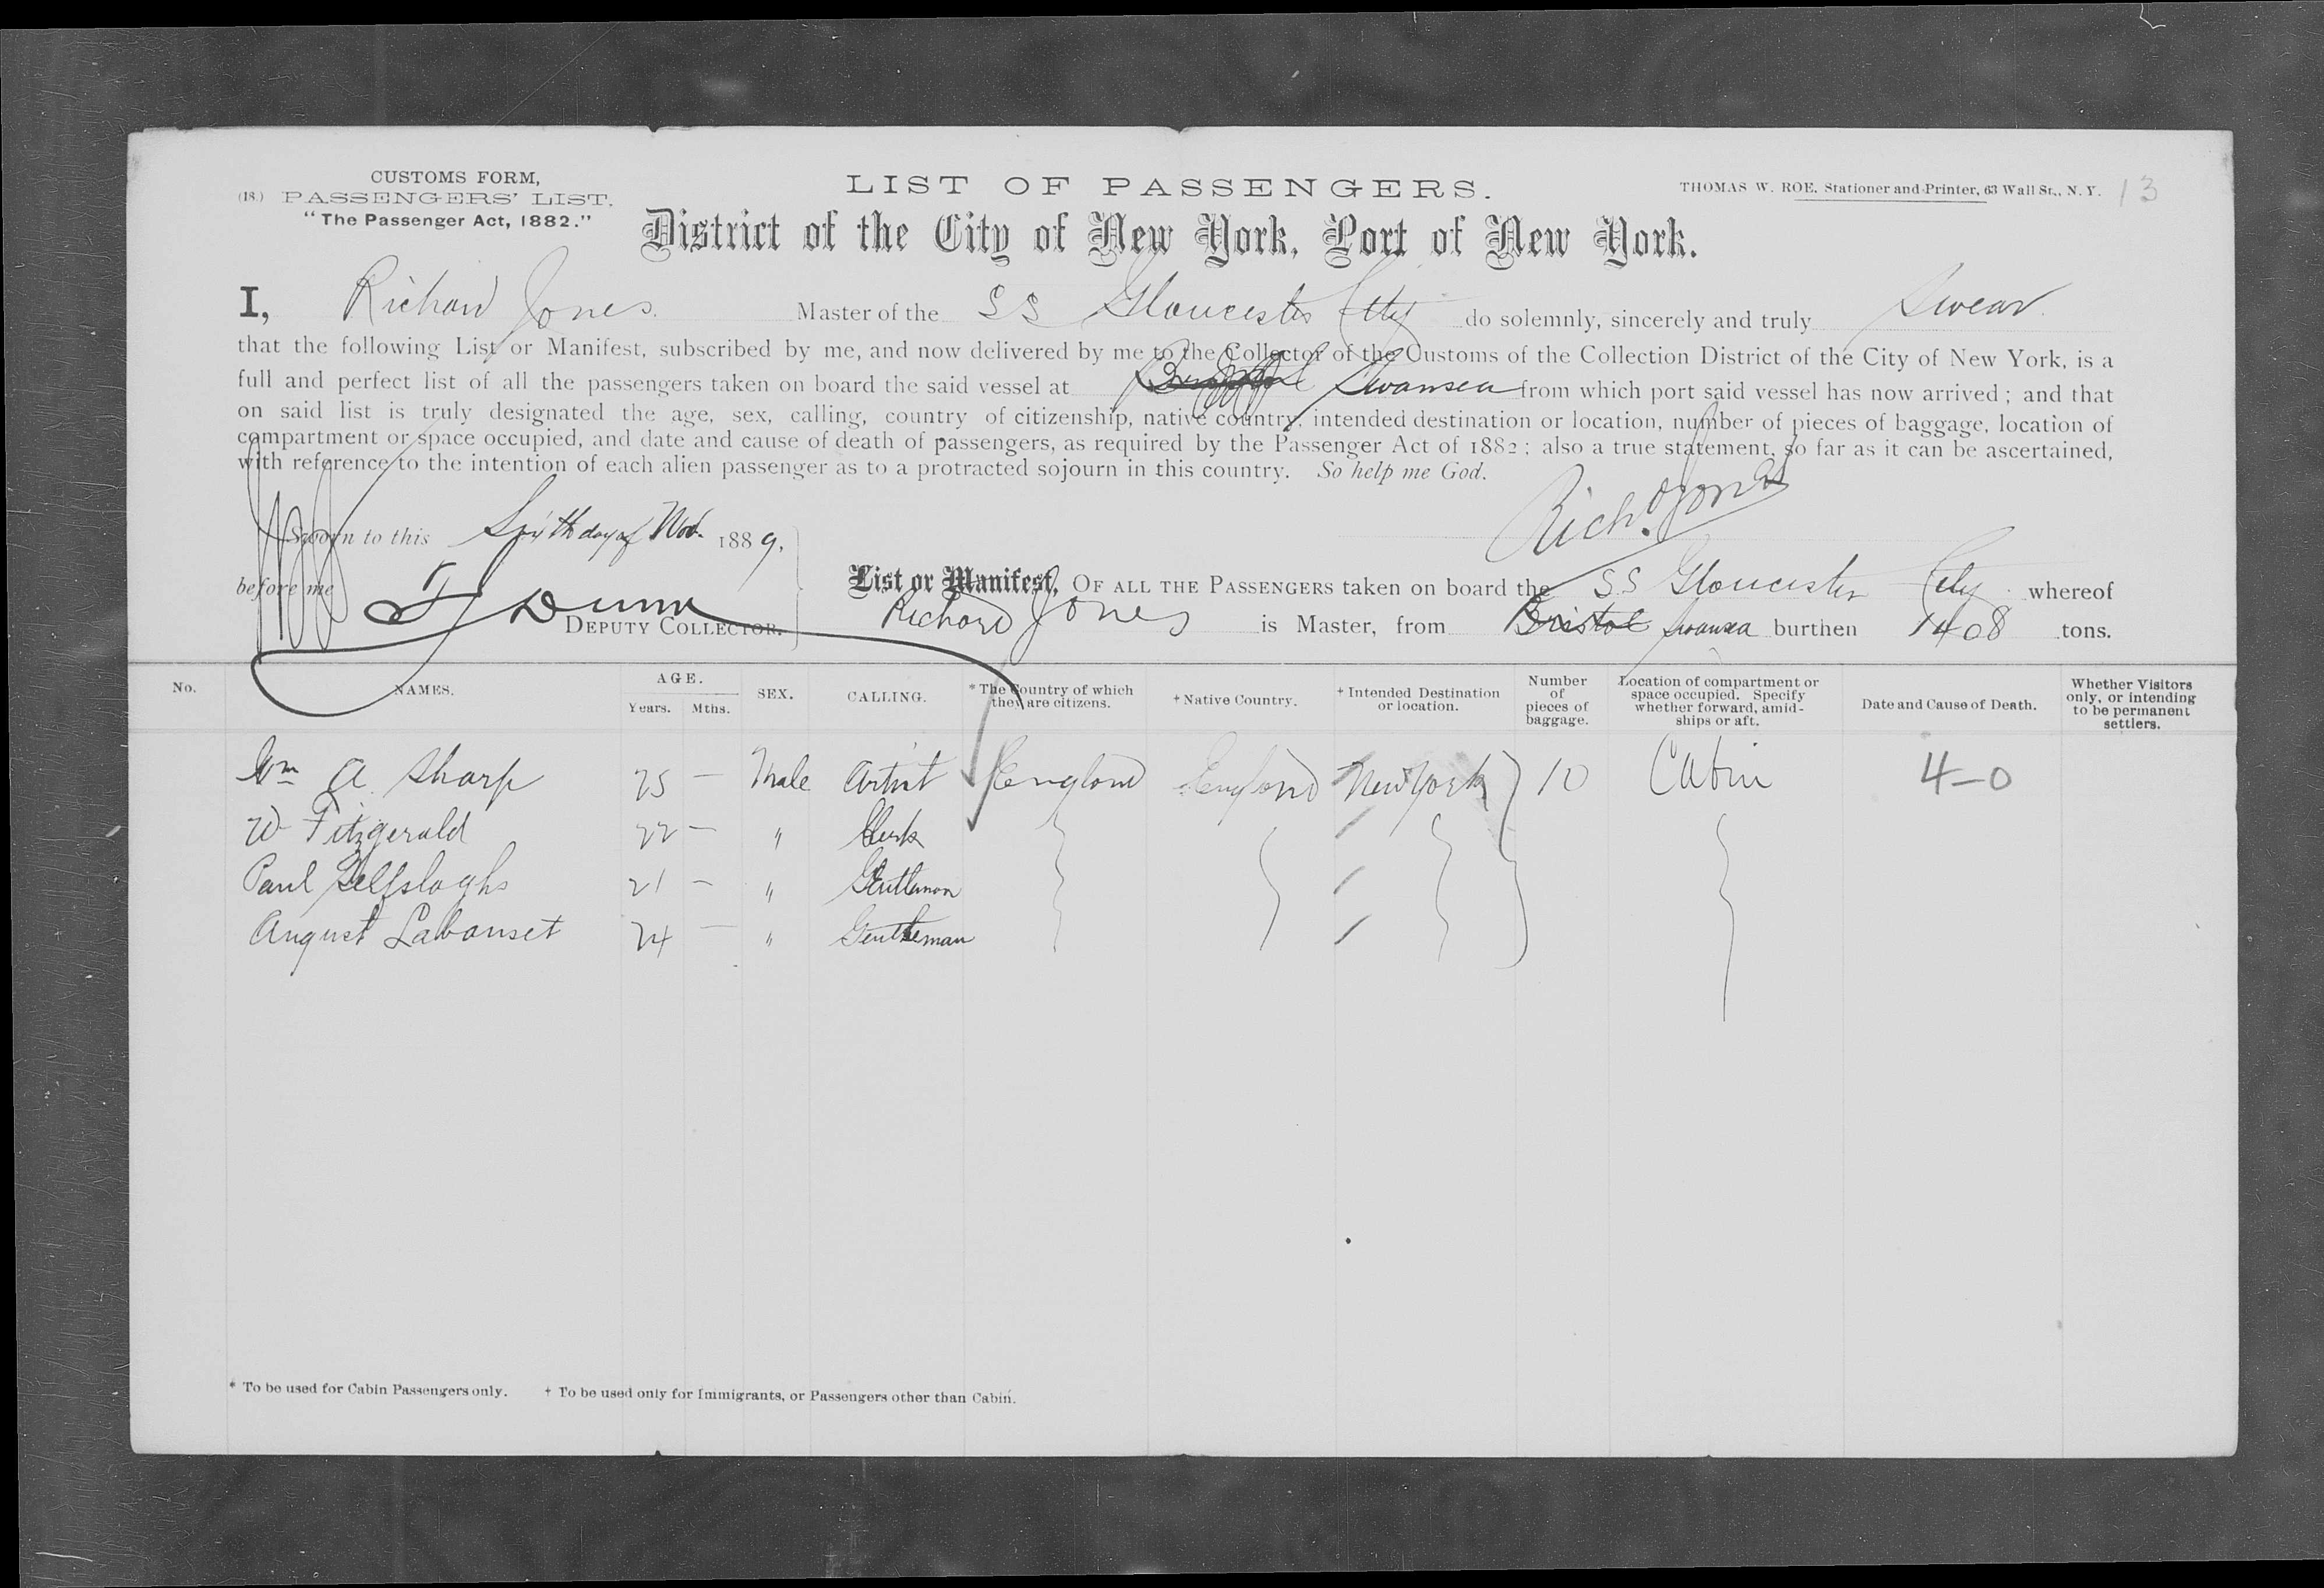 CUSTOMS FORM,
(18.) PASSENGERS' LIST.
"The Passenger Act, 1882."
LIST OF PASSENGERS.
THOMAS W. ROE, Stationer and Printer, 63 Wall St., N. Y. 13
District of the City of New York, Port of New York.
I, Richard Jones. Master of the SS Gloucester City do solemnly, sincerely and truly Swear
that the following List or Manifest, subscribed by me, and now delivered by me to the Collector of the Customs of the Collection District of the City of New York, is a
full and perfect list of all the passengers taken on board the said vessel at Swansea from which port said vessel has now arrived; and that
on said list is truly designated the age, sex, calling, country of citizenship, native country, intended destination or location, number of pieces of baggage, location of
compartment or space occupied, and date and cause of death of passengers, as required by the Passenger Act of 1882; also a true statement, so far as it can be ascertained,
with reference to the intention of each alien passenger as to a protracted sojourn in this country. So help me God.
Richd Jones
Sworn to this Sixth day of Nov. 1889,
before me
Dunn
DEPUTY COLLECTOR.
List or Manifest, OF ALL THE PASSENGERS taken on board the SS Gloucester City whereof
Richard Jones is Master, from Bristol Swansea burthen 1408 tons.
No. NAMES. AGE. Years. Mths. SEX. CALLING. * The Country of which they are citizens. † Native Country. † Intended Destination or location. Number of pieces of baggage. Location of compartment or space occupied. Specify whether forward, amidships or aft. Date and Cause of Death. Whether Visitors only, or intending to be permanent settlers.
Wm A. Sharp 25 — Male Artist England England New York 10 Cabin 4-0
W Fitzgerald 22 — " Clerk
Paul 21 — " Gentleman
August Labanset 24 — " Gentleman
* To be used for Cabin Passengers only. † To be used only for Immigrants, or Passengers other than Cabin.